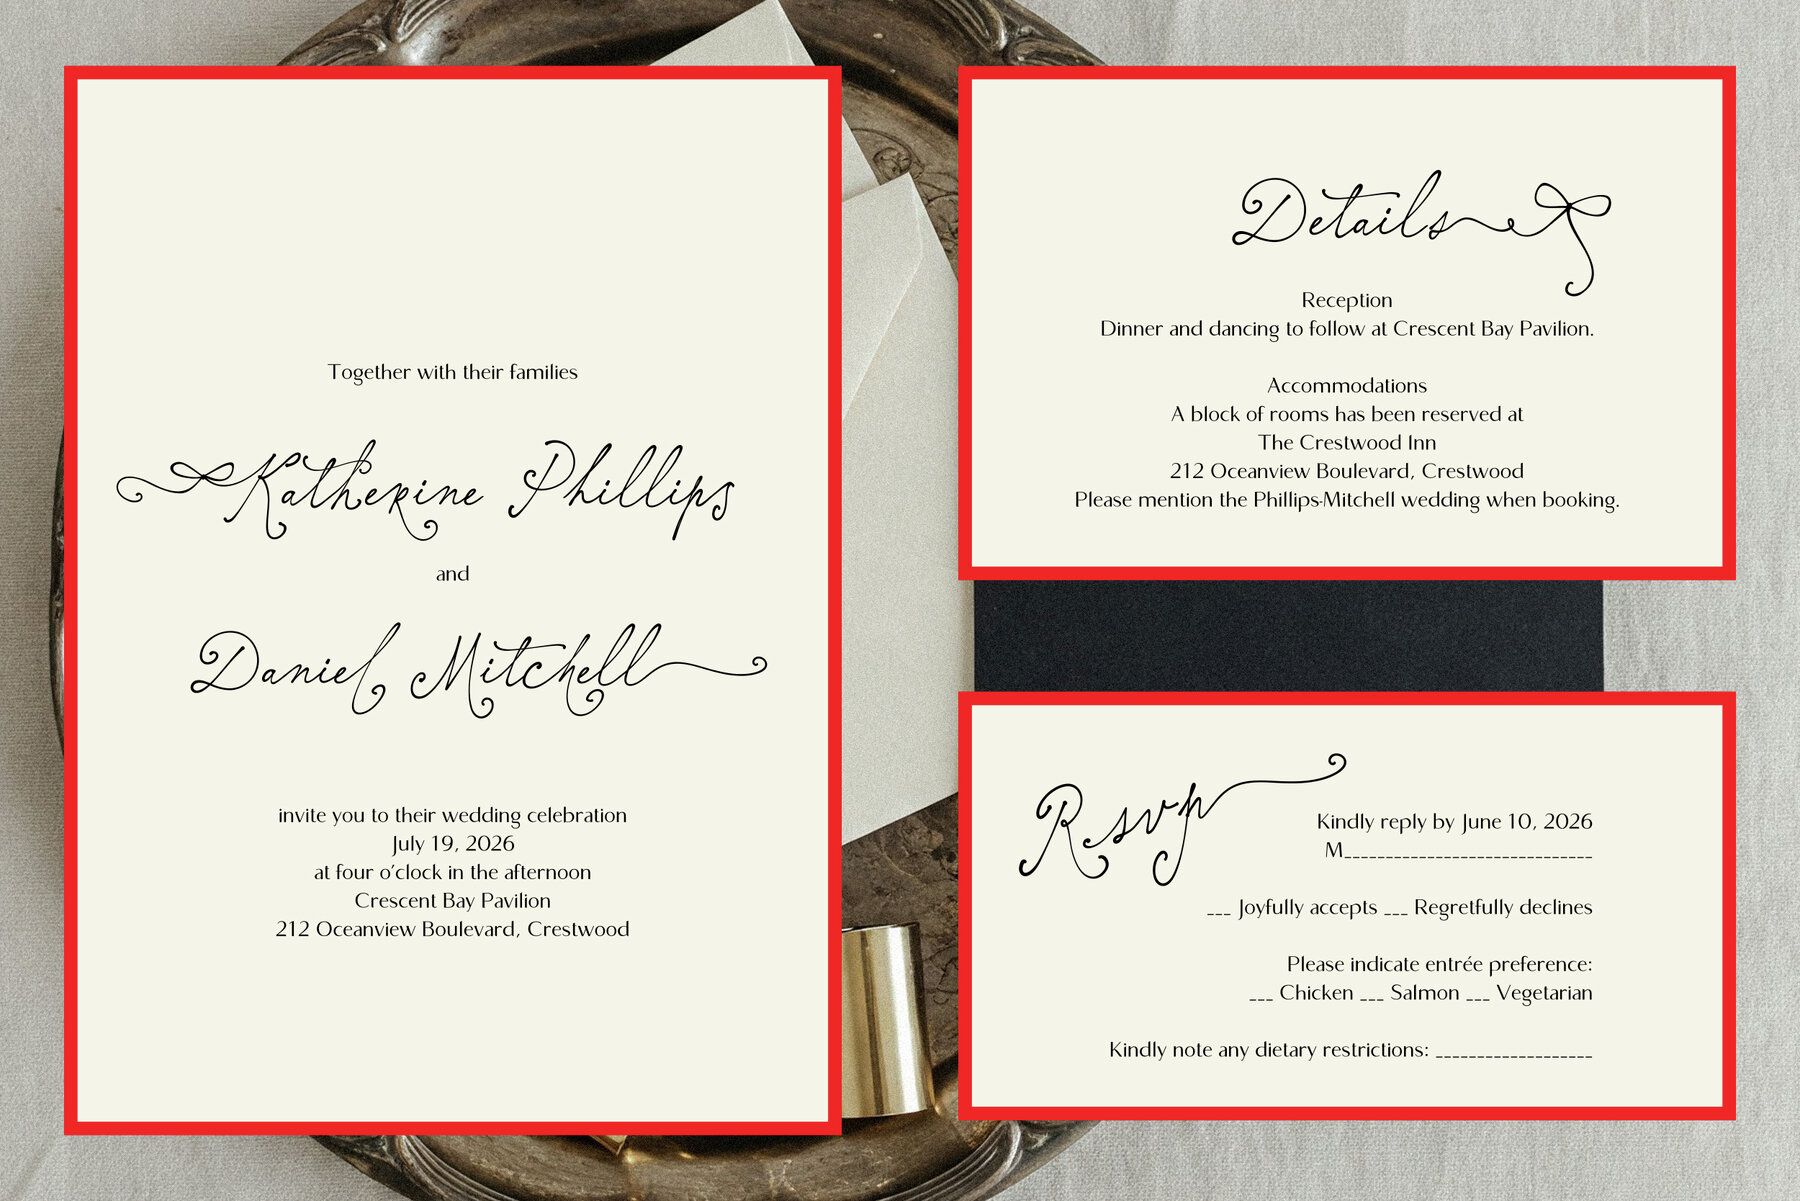 Together with their families
Katherine Phillips
and
Daniel Mitchell
invite you to their wedding celebration
July 19, 2026
at four o'clock in the afternoon
Crescent Bay Pavilion
212 Oceanview Boulevard, Crestwood
Details
Reception
Dinner and dancing to follow at Crescent Bay Pavilion.
Accommodations
A block of rooms has been reserved at
The Crestwood Inn
212 Oceanview Boulevard, Crestwood
Please mention the Phillips-Mitchell wedding when booking.
Rsvp
Kindly reply by June 10, 2026
M______________________________
___ Joyfully accepts ___ Regretfully declines
Please indicate entrée preference:
___ Chicken ___ Salmon ___ Vegetarian
Kindly note any dietary restrictions: ___________________